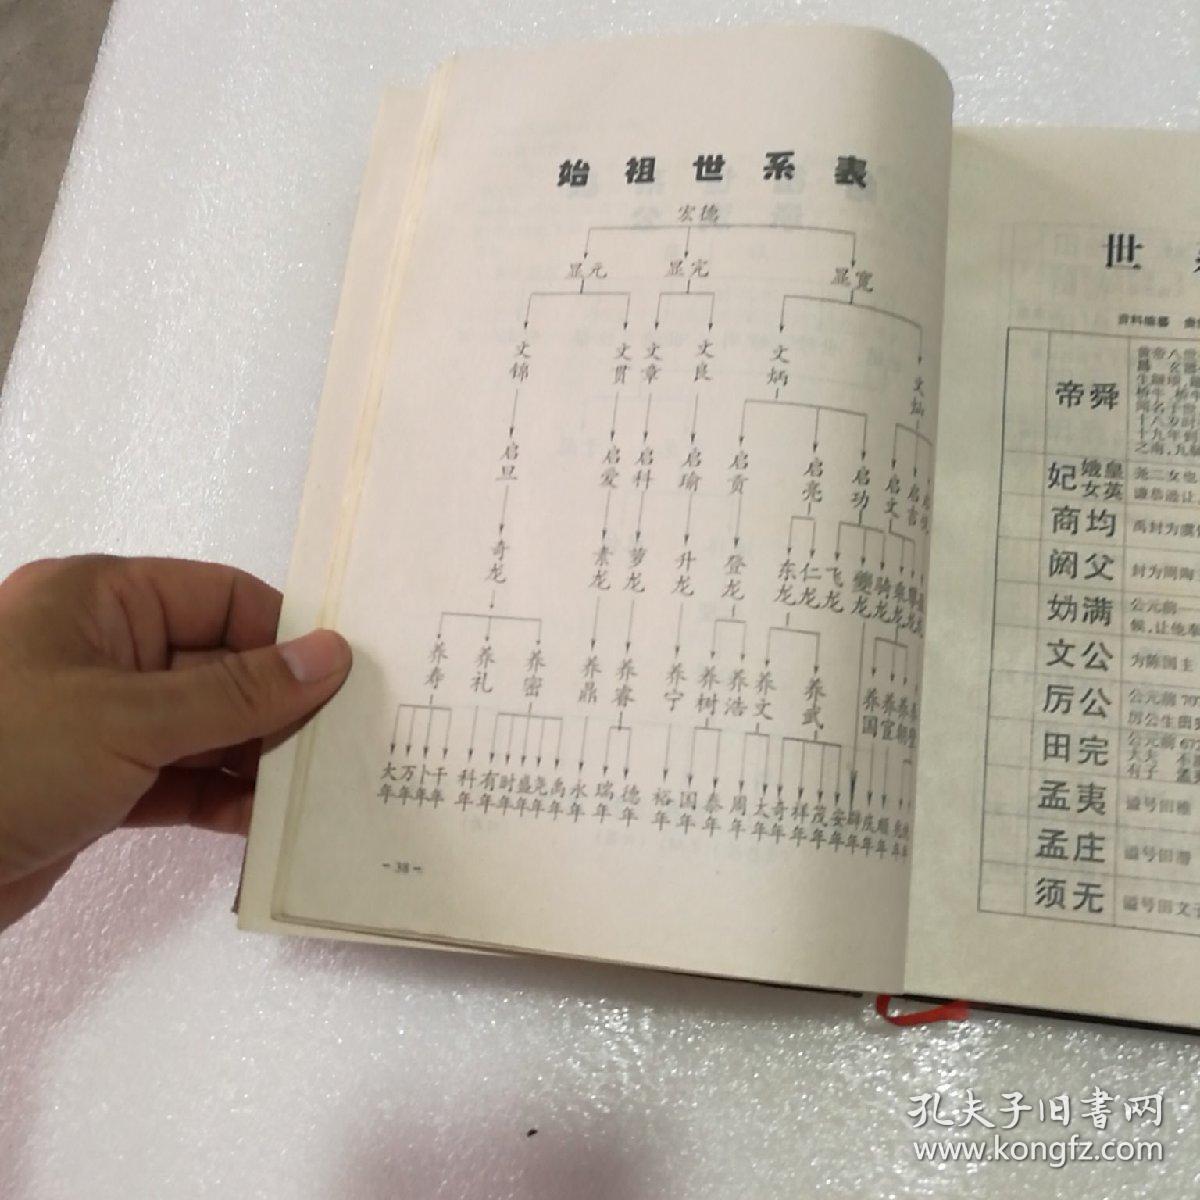 始祖世系表
宏德
显元 显宽
文锦 文贯 文章 文良 文炳 文灿
启旦 启爱 启科 启瑜 启贡 启亮 启功 启文 启言
奇龙 素龙 梦龙 升龙 登龙 东龙 仁龙 飞龙 骑龙
养寿 养礼 养密 养鼎 养睿 养宁 养树 养浩 养文 养武 养国 养宣
大年 万年 卜年 千年 科年 有年 时年 盛年 尧年 禹年 永年 瑞年 德年 裕年 国年 泰年 周年 太年 奇年 祥年 茂年 安年 庆年 顺年
-38-
世
资料编纂
帝舜
黄帝八世
之南,九
妃 娥皇 女英
尧二女也
谦恭逊让,
商均
禹封为虞
阏父
封为周陶
妫满
公元前一
候,让他奉
文公
为陈国主
厉公
公元前707
厉公生田完
田完
公元前67
有子 孟
孟夷
谥号田稚
孟庄
谥号田
须无
谥号田文子
孔夫子旧书网
www.kongfz.com